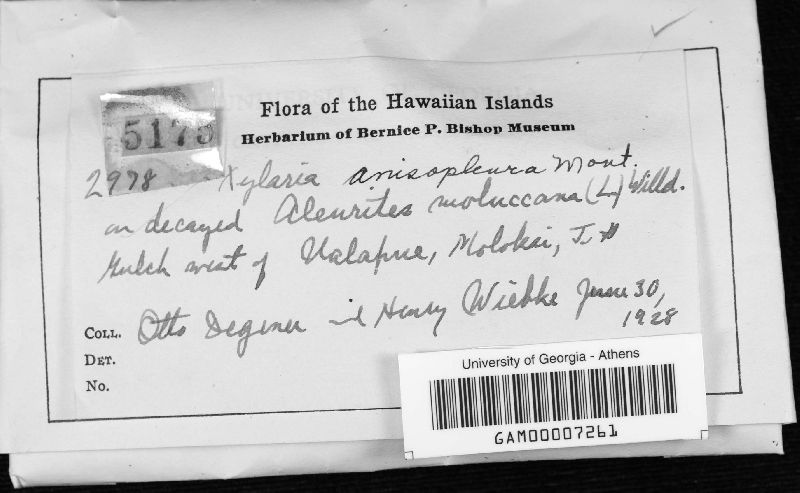 5175
Flora of the Hawaiian Islands
Herbarium of Bernice P. Bishop Museum
2978 Xylaria anisopleura Mont.
on decayed Aleurites moluccana (L.) Willd.
Gulch west of Ualapue, Molokai, T.H
COLL. Otto Degener and Henry Wiebke June 30,
1928
DET.
No.
University of Georgia - Athens
GAM00007261